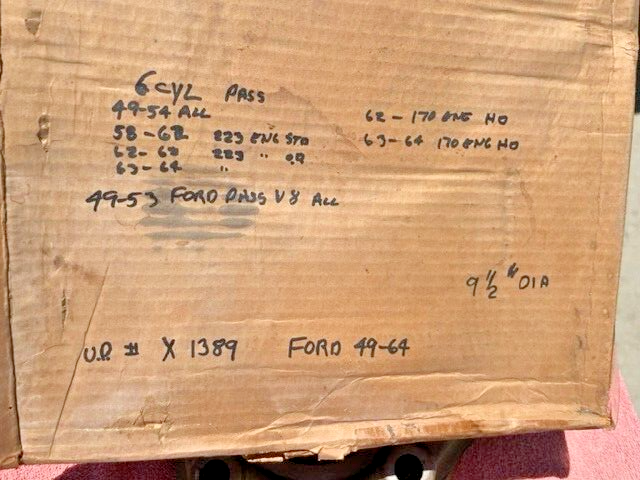 6 CYL PASS
49-54 ALL
58-62 223 ENG STD
62-62 223 "
63-64 "
62-170 ENG HD
63-64 170 ENG HD
49-53 FORD PASS V8 ALL
9 1/2 " DIA
U.P. # X 1389 FORD 49-64